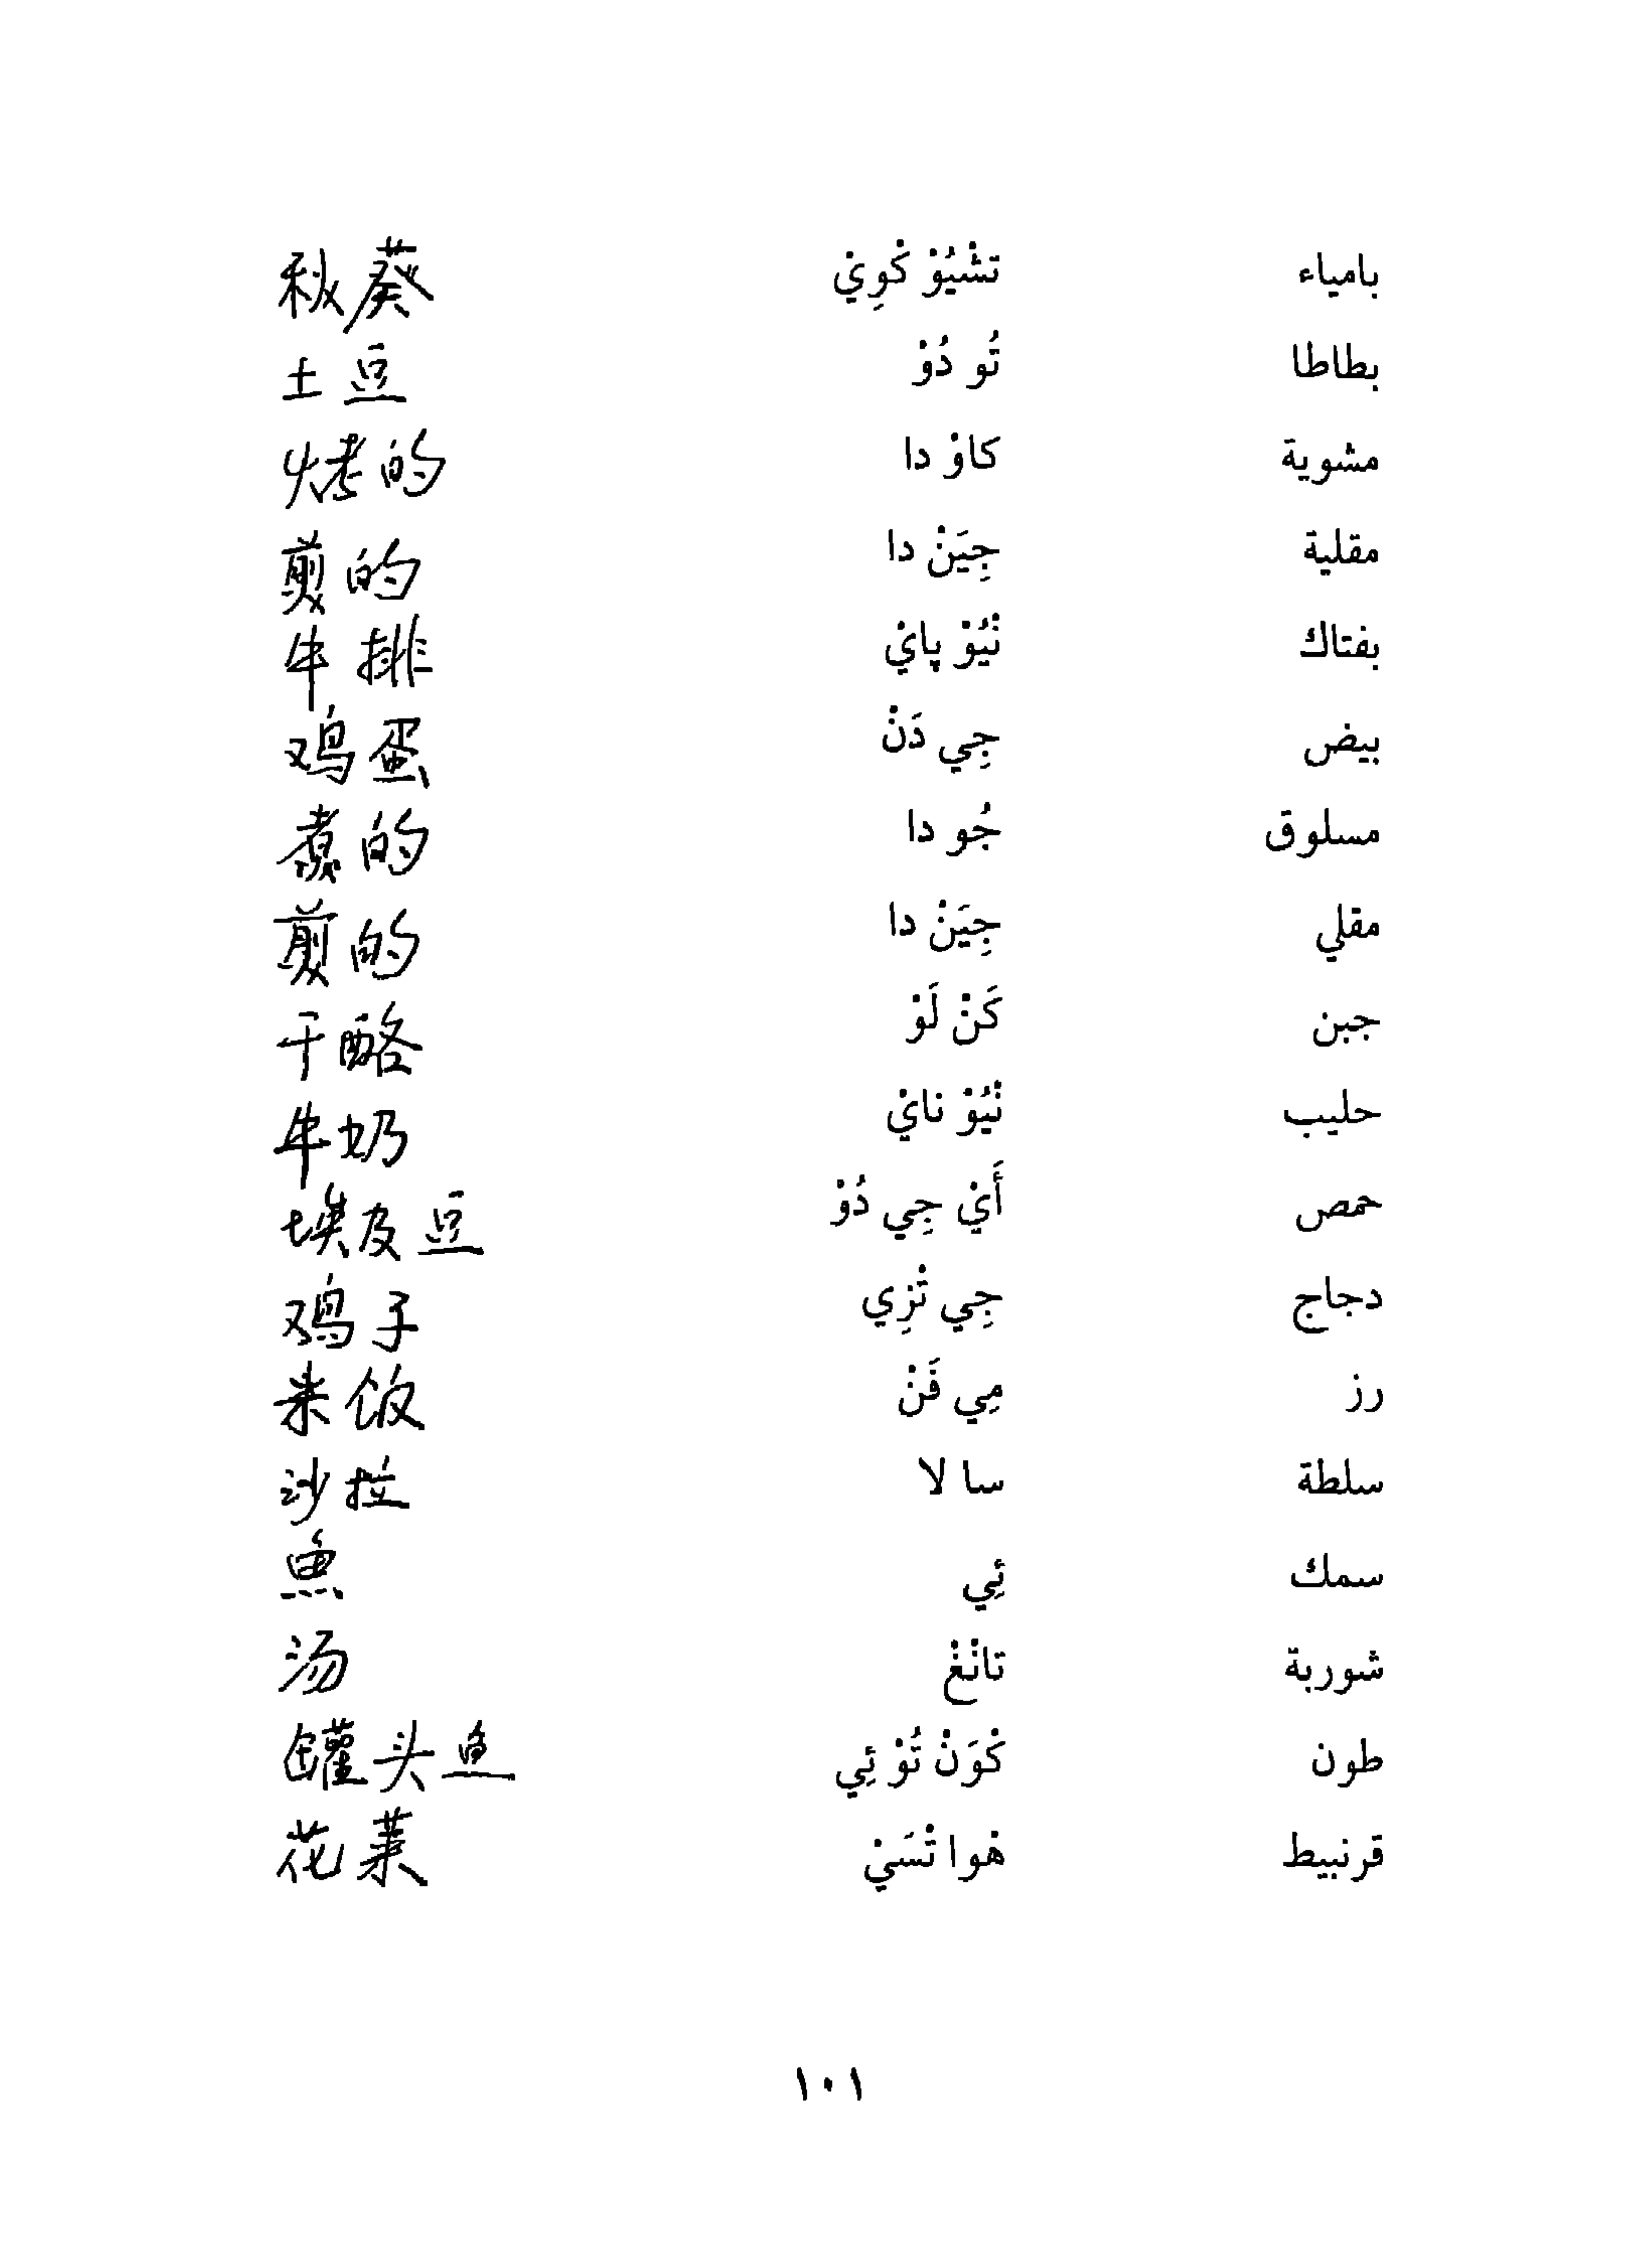 بامياء تشْيُوْ كْوِيْ 秋葵
بطاطا تُو دُوْ 土豆
مشوية كاوْ دا 烤的
مقلية جِيَنْ دا 煎的
بفتاك نْيُوْ پايْ 牛排
بيض جِي دَنْ 鸡蛋
مسلوق جُو دا 煮的
مقلي جِيَنْ دا 煎的
جبن كَنْ لَوْ 干酪
حليب نْيُوْ نايْ 牛奶
حمص أَيْ جِي دُوْ 埃及豆
دجاج جِي تْزِي 鸡子
رز مِي فَنْ 米饭
سلطة سا لا 沙拉
سمك ئِي 鱼
شوربة تانْغْ 汤
طون كْوَنْ تُوْ ئِي 罐头鱼
قرنبيط هْوا تْسَيْ 花菜
١٠١